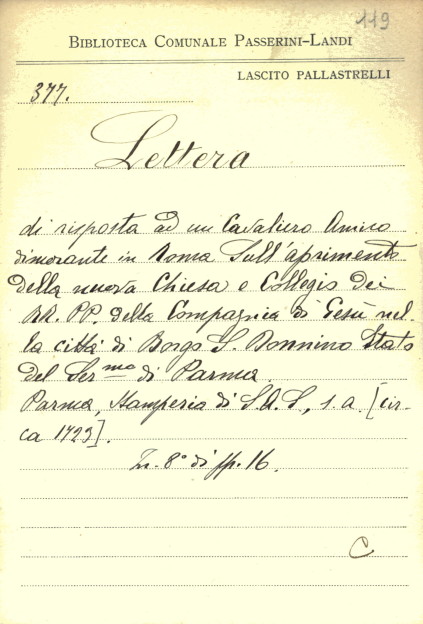 119
BIBLIOTECA COMUNALE PASSERINI-LANDI
LASCITO PALLASTRELLI
377.
Lettera
di risposta ad un Cavaliero Amico
dimorante in Roma Sull'aprimento
della nuova Chiesa e Collegio dei
RR. PP. della Compagnia di Gesù nel-
la città di Borgo S. Donnino Stato
del Ser.mo di Parma.
Parma, Stamperia di S.A.S., s. a. [cir-
ca 1723].
In 8° di pp. 16.
C